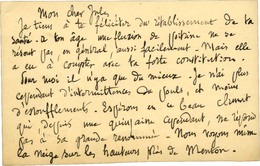 Mon cher Jules,
Je tiens à te féliciter du rétablissement de ta
santé. à ton âge une fluxion de poitrine ne se
résout pas en général aussi facilement. Mais elle
a eu à compter avec ta forte constitution.
Pour moi il n'y a que du mieux. Je n'ai plus
cependant d'intermittences du pouls, et moins
d'étouffements. Espérons en ce beau climat
qui, depuis une quinzaine cependant, ne répond
pas à sa grande renommée. Nous voyons même
la neige sur les hauteurs près de Menton.